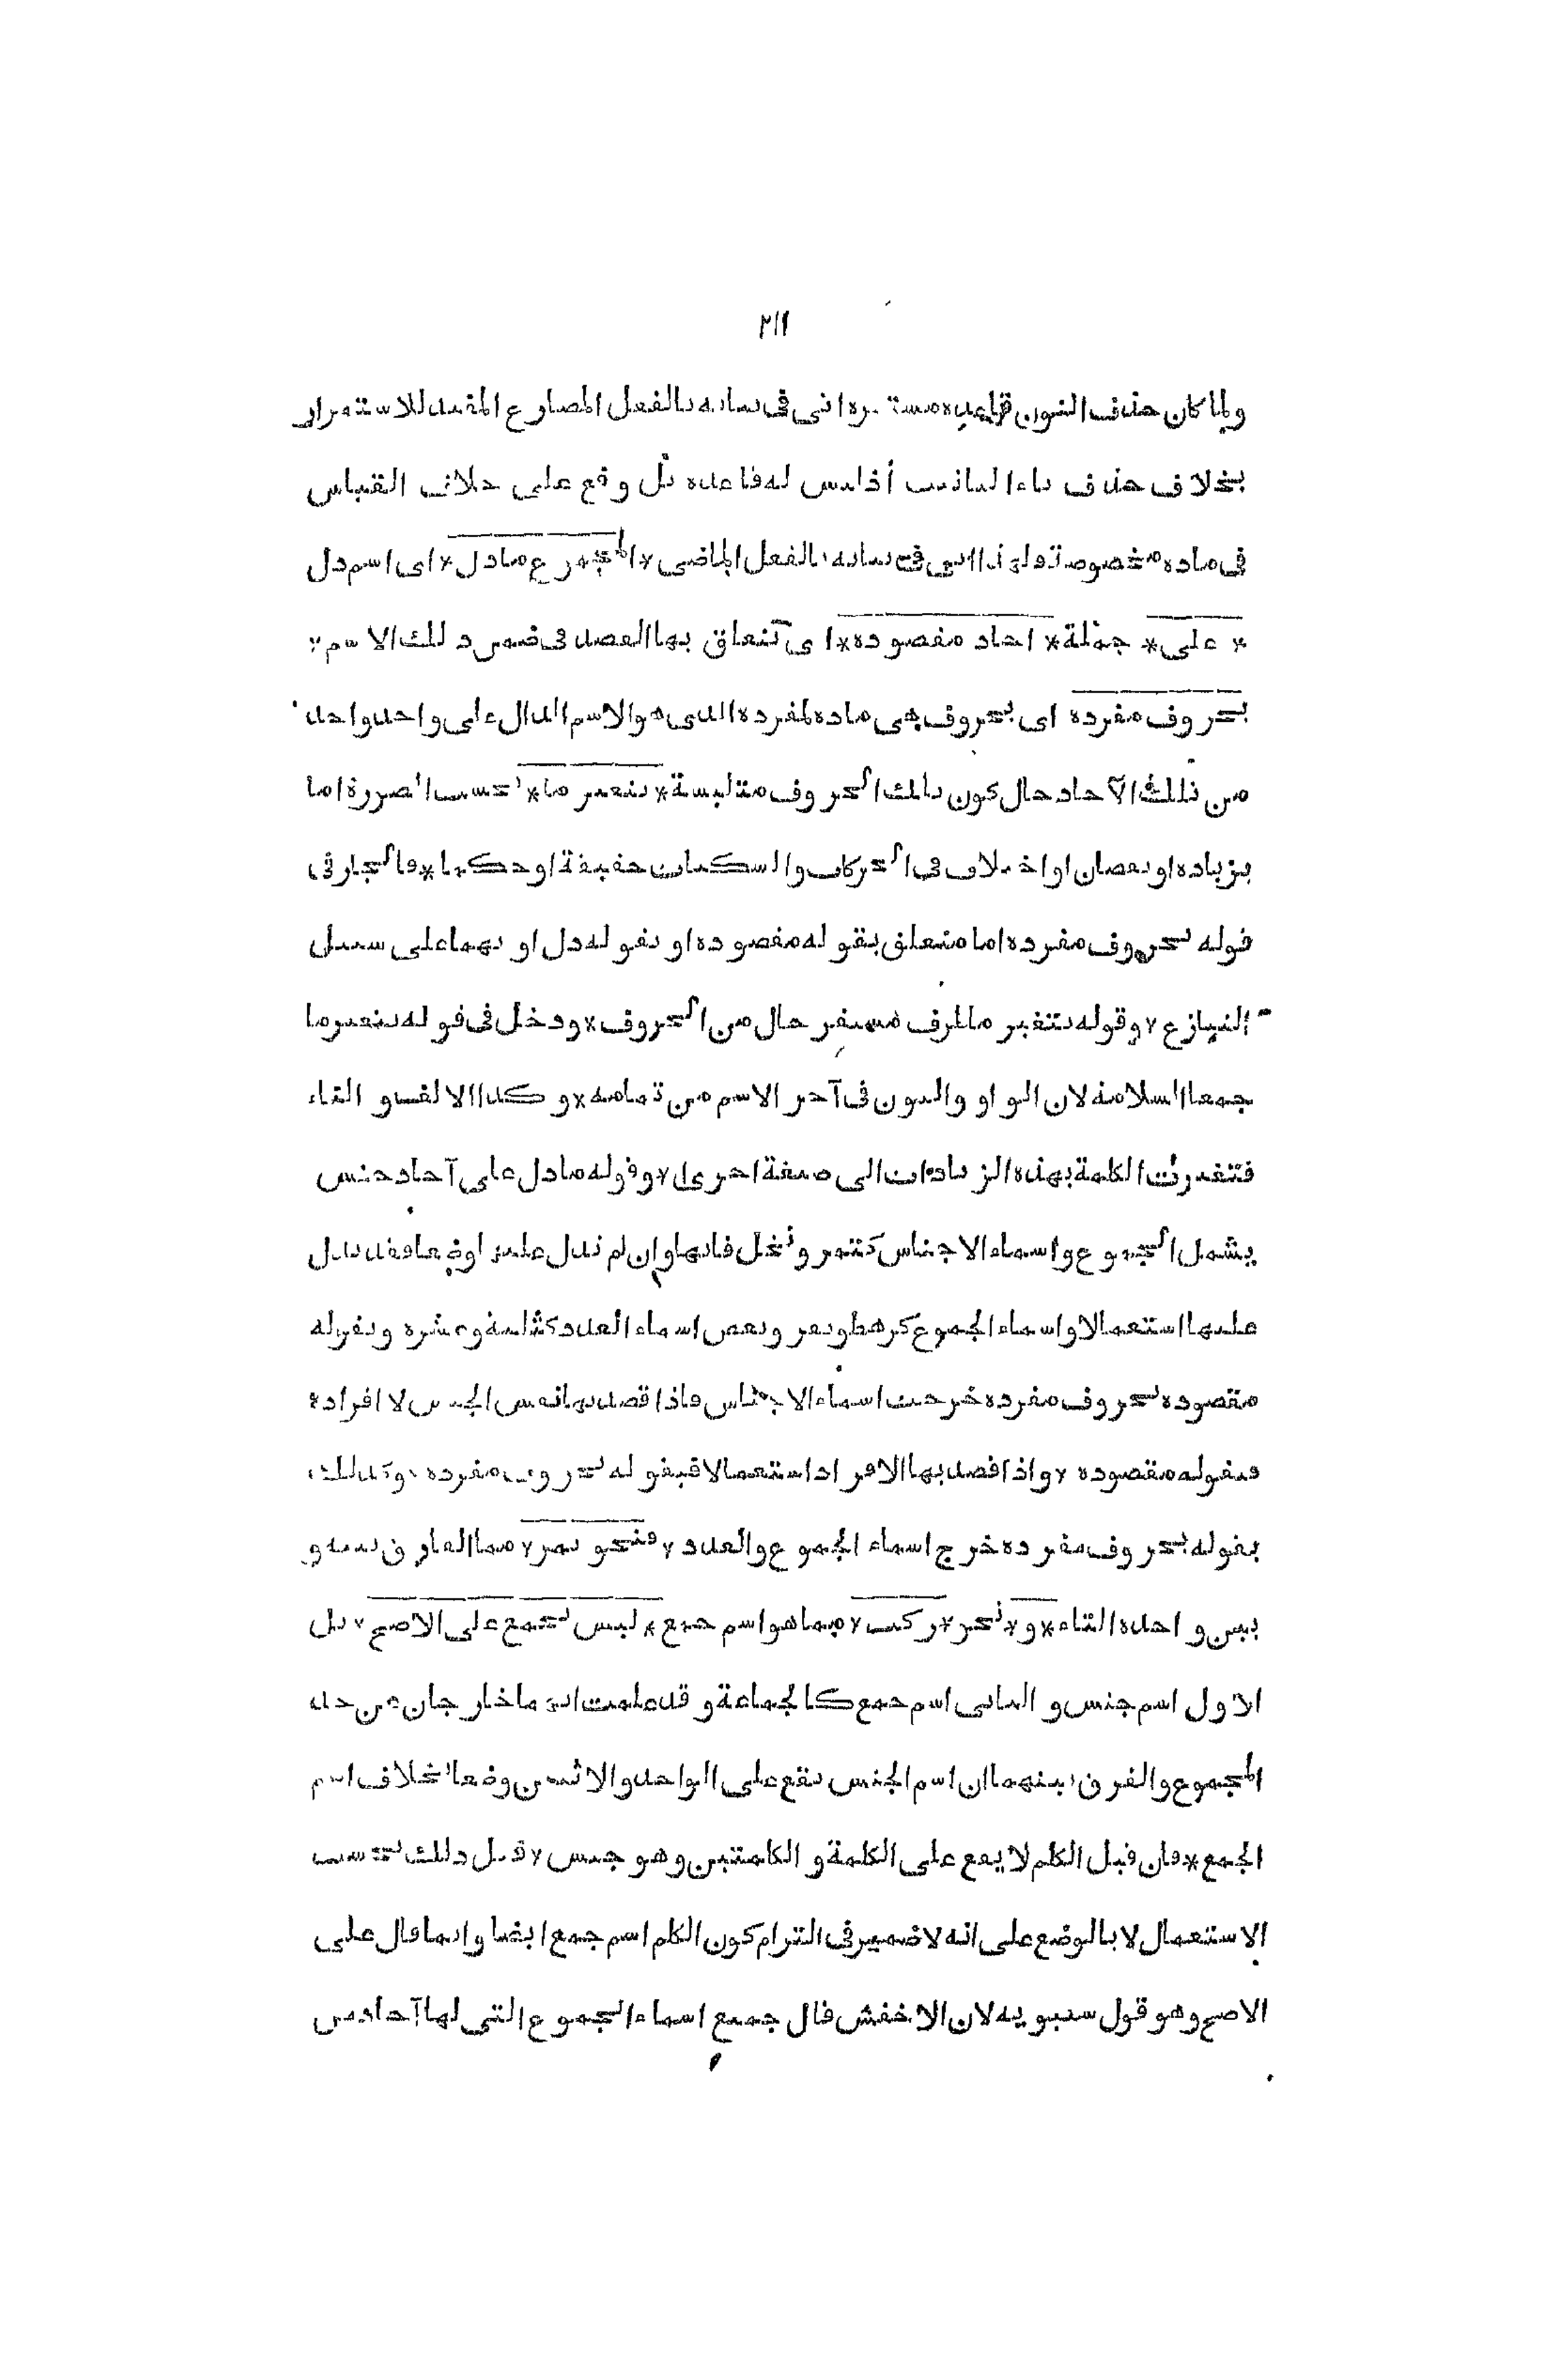 ٢١١
ولما كان حذف النون قاعدة مستمرة اتى فى بيانه بالفعل المضارع المفيد للاستمرار
بخلاف حذف تاء التانيث اذ ليس له قاعدة بل وقع على خلاف القياس
فى مادة مخصوصة ولذا اتى فى بيانه بالفعل الماضى * المجموع مادل * اى اسم دل
* على * جملة * احاد مقصودة * اى تتعلق بها القصد فى ضمن ذلك الاسم *
بحروف مفرده اى بحروف هى مادة لمفرده الذى هو الاسم الدال على واحد واحد
من تلك الآحاد حال كون تلك الحروف متلبسة * بتغير ما * بحسب الصورة اما
بزيادة او نقصان او اختلاف فى الحركات والسكنات حقيقة او حكما * فالجار فى
قوله بحروف مفرده اما متعلق بقوله مقصودة او بقوله دل او بهما على سبيل
التنازع * وقوله بتغير ما ظرف مستقر حال من الحروف * ودخل فى قوله بتغير ما
جمعا السلامة لان الواو والنون فى آخر الاسم من تمامه * وكذا الالف والتاء
فتغيرت الكلمة بهذه الزيادات الى صيغة اخرى * وقوله مادل على آحاد جنس
يشمل الجموع واسماء الاجناس كتمر ونخل فانها وان لم تدل عليها وضعا فقد تدل
عليها استعمالا واسماء الجموع كرهط ونفر وبعض اسماء العدد كثلثة وعشرة وبقوله
مقصودة بحروف مفرده خرجت اسماء الاجناس فاذا قصد بها نفس الجنس لا افراده
فبقوله مقصودة * واذا قصد بها الافراد استعمالا فبقوله بحروف مفرده * وكذلك
بقوله بحروف مفرده خرج اسماء الجموع والعدد * فنحو تمر * مما الفارق بينه و
بين واحده التاء * و * نحو * ركب * مما هو اسم جمع * ليس بجمع على الاصح * بل
الاول اسم جنس والثانى اسم جمع كالجماعة وقد علمت انهما خارجان من حد
المجموع والفرق بينهما ان اسم الجنس يقع على الواحد والاثنين وضعا بخلاف اسم
الجمع * فان قيل الكلم لا يقع على الكلمة والكلمتين وهو جنس * قيل ذلك بحسب
الاستعمال لا بالوضع على انه لا ضمير فى التزام كون الكلم اسم جمع ايضا وانما قال على
الاصح وهو قول سيبويه لان الاخفش قال جميع اسماء الجموع التى لها آحاد من